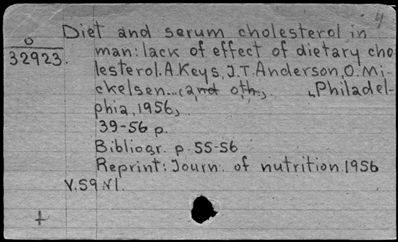 4
Diet and serum cholesterol in
O
32923.
man: lack of effect of dietary cho
lesterol. A. Keys, J. T. Anderson, O. Mi-
ckelsen... (and oth.). Philadel-
phia, 1956,
39-56 p.
Bibliogr. p. 55-56
Reprint: Journ. of nutrition 1956
V. 59 N 1.
+